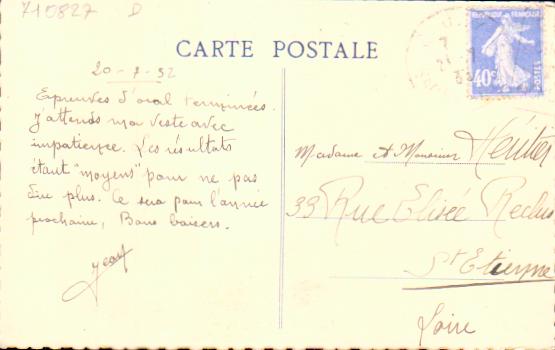 710827 D
CARTE POSTALE
20-7-32
Epreuves d'oral terminées.
J'attends ma veste avec
impatience. Les résultats
étant "moyens" pour ne pas
dire plus. Ce sera pour l'année
prochaine, Bons baisers.
Jean
REPUBLIQUE FRANÇAISE
40c
POSTES
Madame et Monsieur Héritier
33 Rue Elisée Reclus
St Etienne
Loire